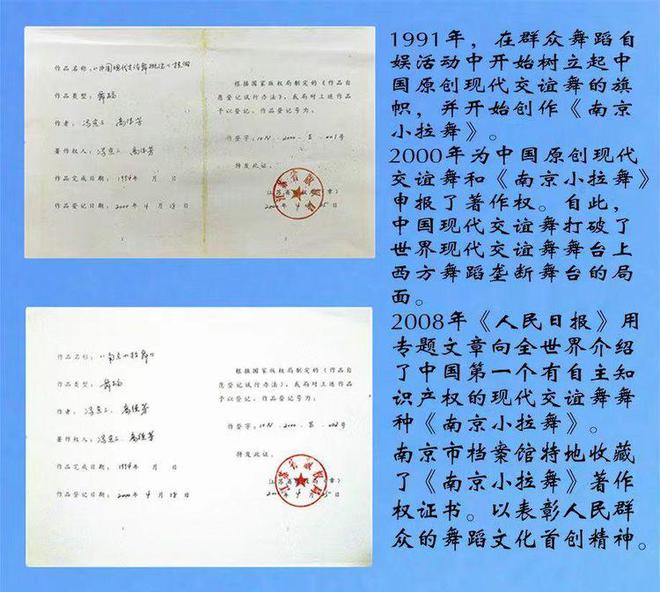 作品名称:《中国现代交谊舞概论》提纲
作品类型:舞蹈
作者:
著作权人:
作品完成日期:1994年 月 日
作品登记日期:2000年4月18日
根据国家版权局制定的《作品自
愿登记试行办法》,我局对上述作品
予以登记,作品登记号为:
作登字:10-N-2000-第-001号
特发此证。
江苏省版权局
作品名称:《南京小拉舞》
作品类型:舞蹈
作者:
著作权人:
作品完成日期:1994年 月 日
作品登记日期:2000年4月18日
根据国家版权局制定的《作品自
愿登记试行办法》,我局对上述作品
予以登记,作品登记号为:
作登字:10-N-2000-第-002号
特发此证。
江苏省版权局
1991年,在群众舞蹈自
娱活动中开始树立起中
国原创现代交谊舞的旗
帜,并开始创作《南京
小拉舞》。
2000年为中国原创现代
交谊舞和《南京小拉舞》
申报了著作权。自此,
中国现代交谊舞打破了
世界现代交谊舞舞台上
西方舞蹈垄断舞台的局
面。
2008年《人民日报》用
专题文章向全世界介绍
了中国第一个有自主知
识产权的现代交谊舞舞
种《南京小拉舞》。
南京市档案馆特地收藏
了《南京小拉舞》著作
权证书。以表彰人民群
众的舞蹈文化首创精神。